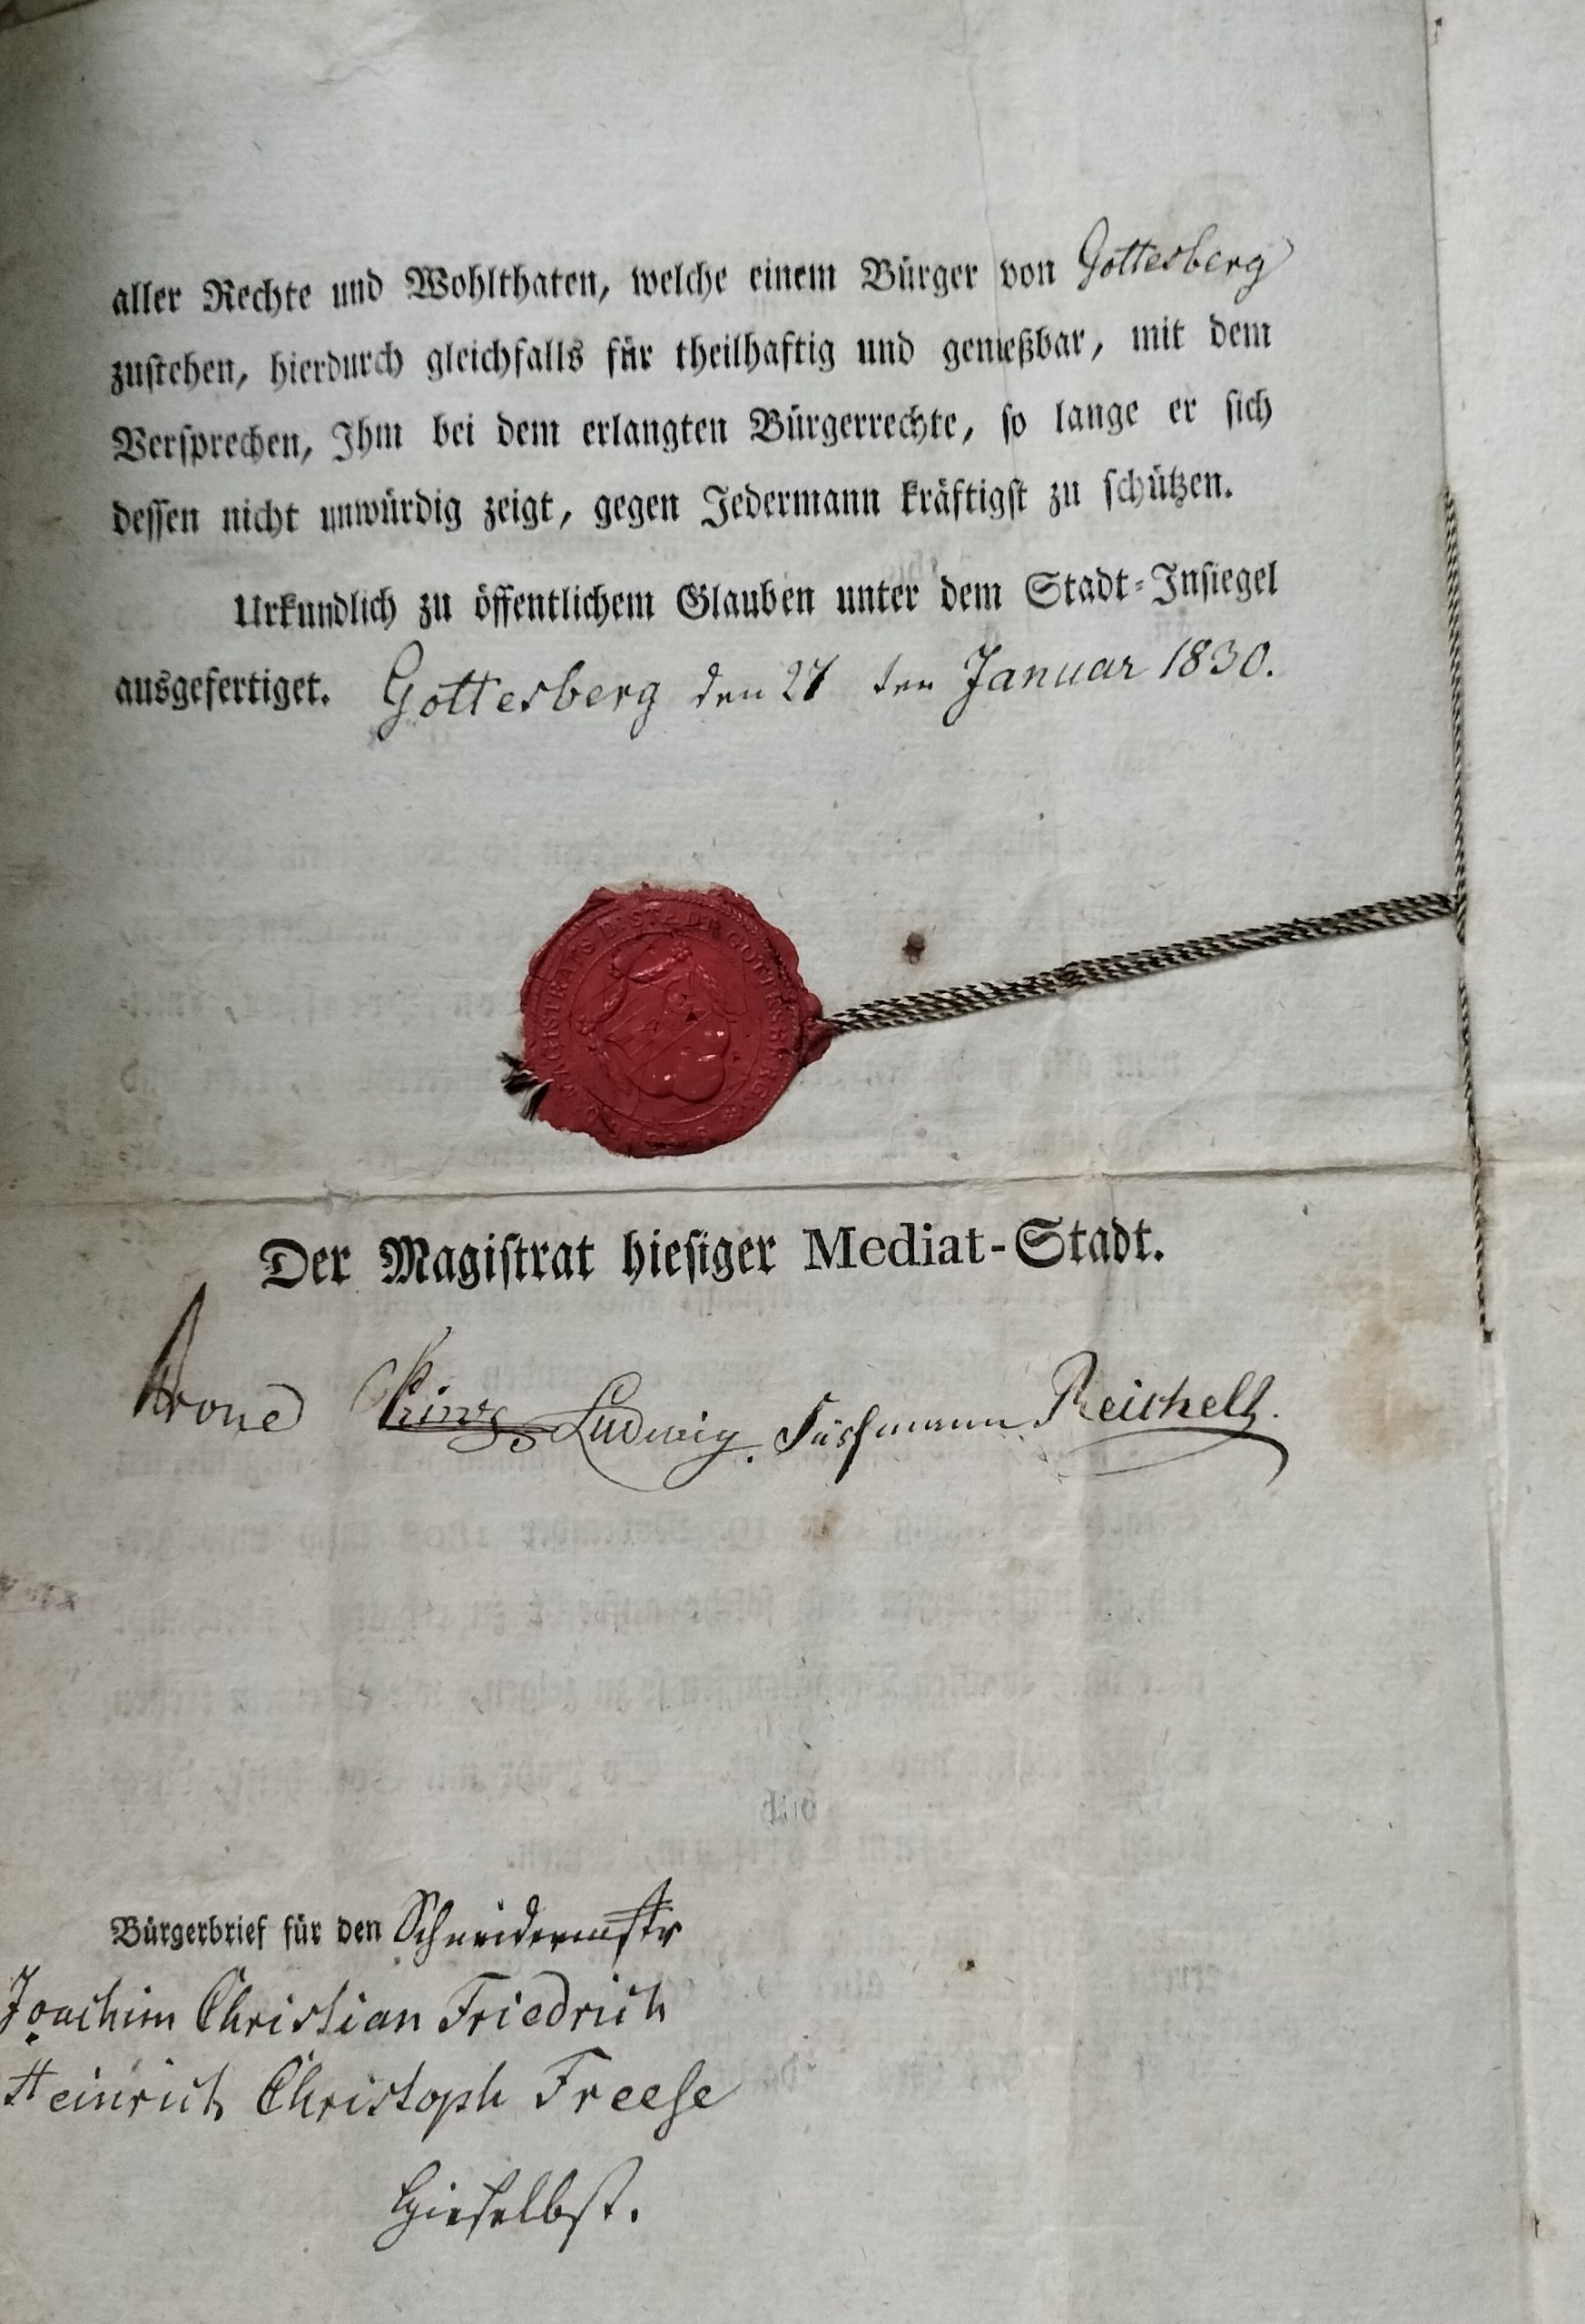 aller Rechte und Wohlthaten, welche einem Bürger von Gottesberg
zustehen, hierdurch gleichfalls für theilhaftig und genießbar, mit dem
Versprechen, Ihm bei dem erlangten Bürgerrechte, so lange er sich
dessen nicht unwürdig zeigt, gegen Jedermann kräftigst zu schützen.
Urkundlich zu öffentlichem Glauben unter dem Stadt-Insiegel
ausgefertiget. Gottesberg den 27 ten Januar 1830.
Der Magistrat hiesiger Mediat-Stadt.
Ludwig. Reichelt.
Bürgerbrief für den Schneidermstr
Joachim Christian Friedrich
Heinrich Christoph Freese
hieselbst.